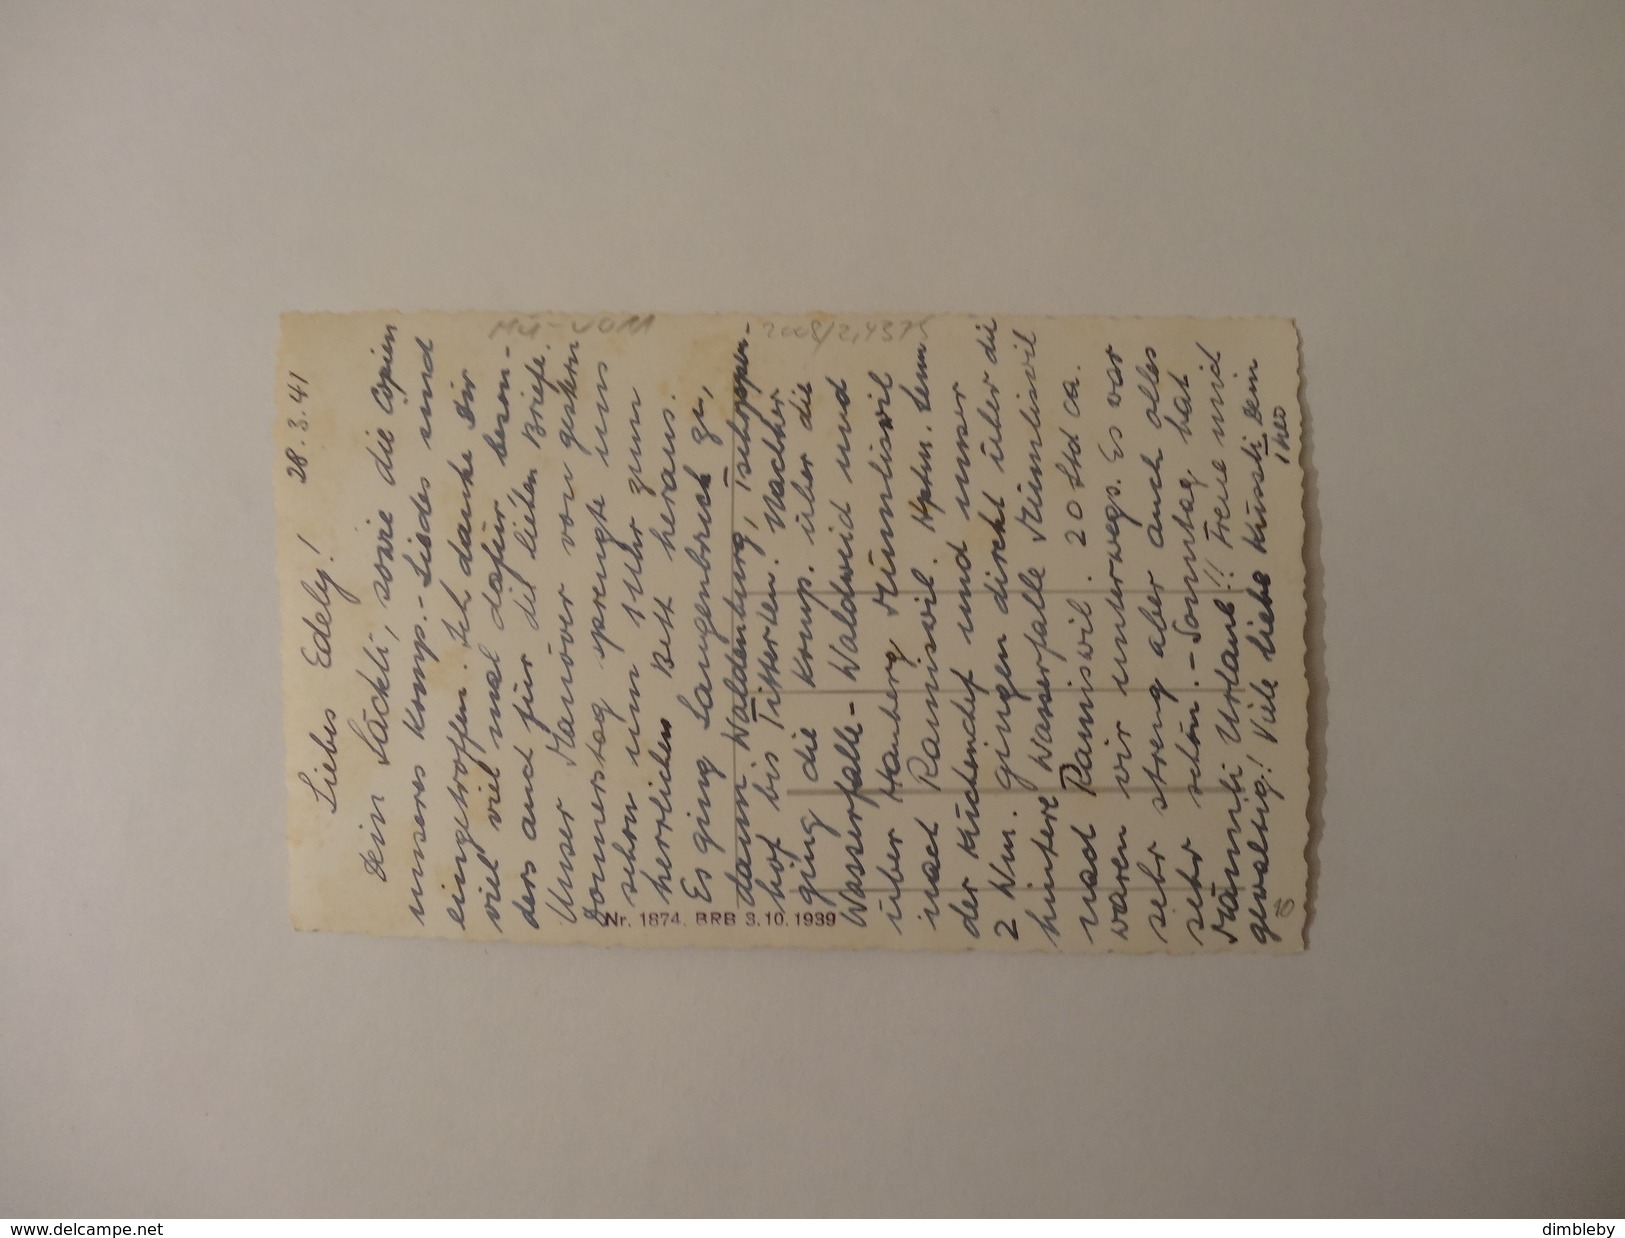 28.3.41
Liebes Edely!
Dein Säckli, sowie die Copien
unseres Komp.-Liedes sind
eingetroffen. Ich danke Dir
viel viel mal dafür beson-
ders auch für die lieben Briefe.
Unser Manöver von gestern
Donnerstag sprengte uns
schon um 1 Uhr zum
herrlichen Bett heraus.
Es ging Langenbruck zu,
dann Waldenburg,
hof bis Titterten. Nachher
ging die Komp. über die
Wasserfalle - Waldweid und
über Hauberg Mümliswil
nach Ramiswil. Hptm.
der Küchenchef und unser
2 Wm. gingen direkt über die
hintere Wasserfalle Mümliswil
nach Ramiswil. 20 Std ca.
waren wir unterwegs. Es war
sehr streng aber auch alles
sehr schön. - Sonntag hat
Mämmli Urlaub!! Freue mich
gewaltig! Viele liebe Küssli Dein
Theo
Nr. 1874. BRB 3.10.1939
MÜ-VO11
2008/2,4375
10
www.delcampe.net
dimbleby